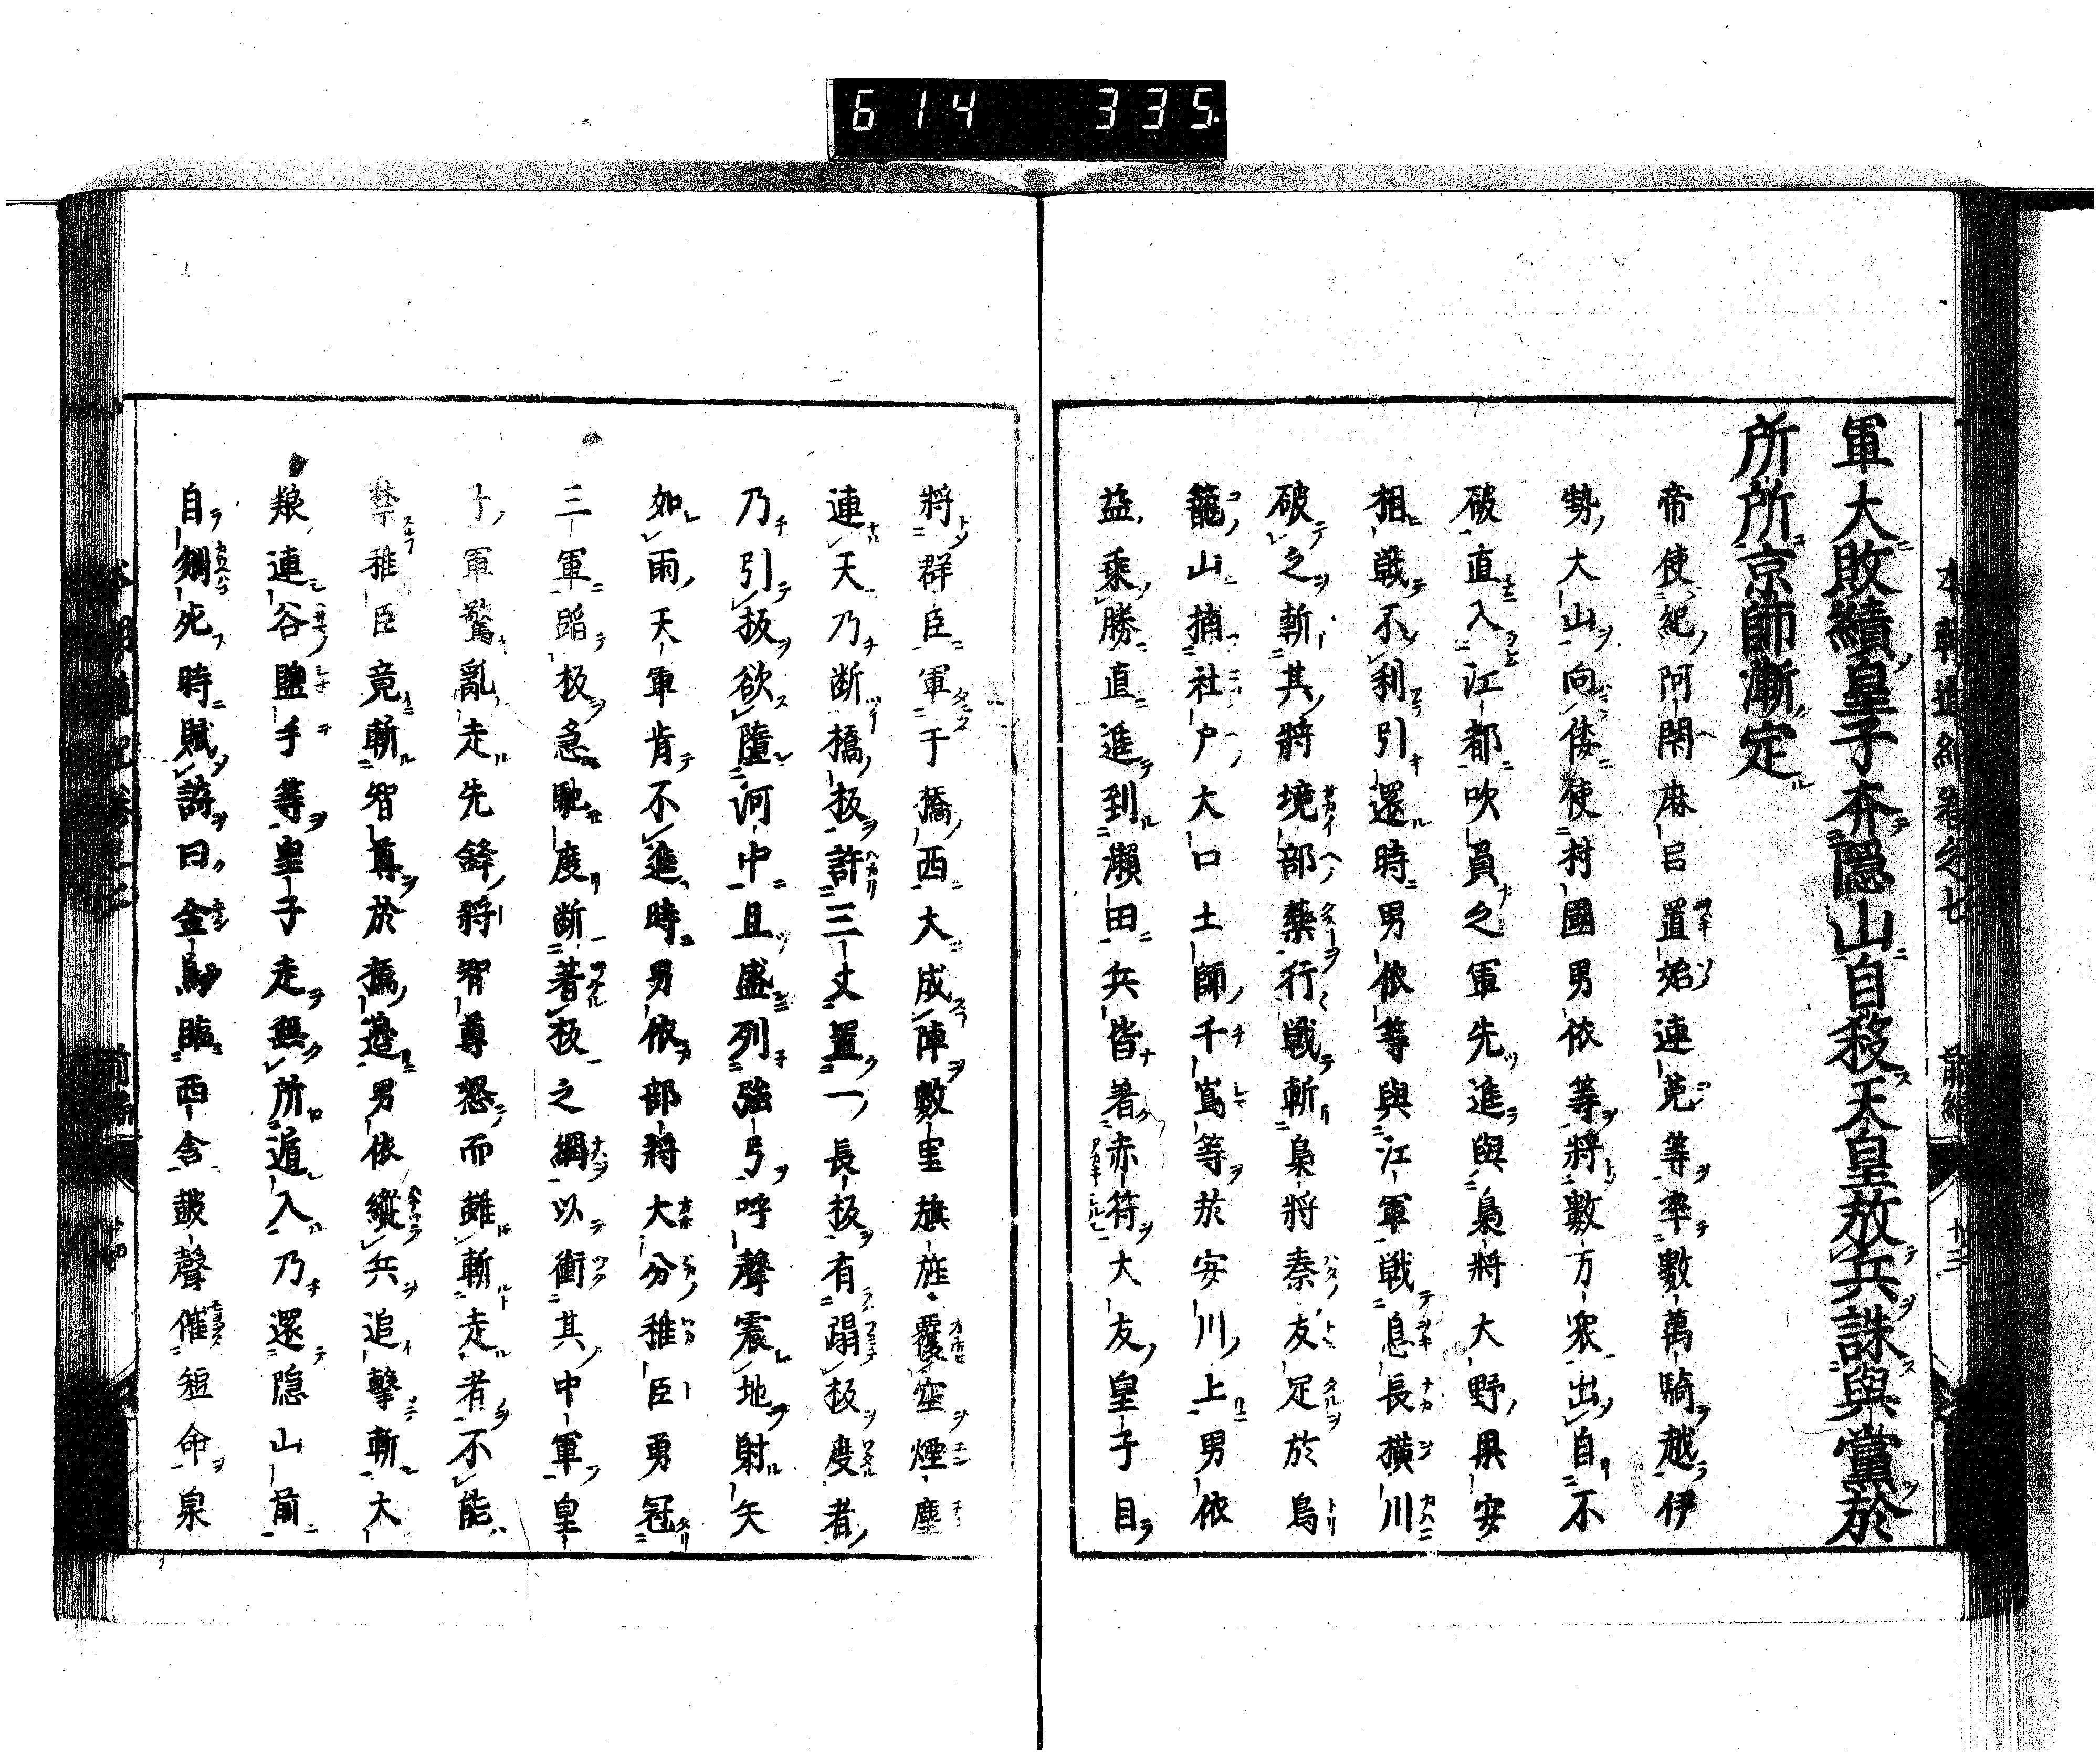 614 335.
本朝通紀卷之七 前編 十三
軍大敗績皇子奔隱山自殺天皇放兵誅與黨於
所所京師漸定
帝使紀阿閇麻呂置始連菟等率數萬騎越伊
勢大山向倭使村國男依等將數万衆出自不
破直入江都吹負之軍先進與梟將大野果安
相戦不利引還時男依等與江軍戦息長横川
破之斬其將境部藥行戦斬梟將秦友足於鳥
籠山捕社戸大口土師千嶌等於安川上男依
益乘勝直進到瀬田兵皆著赤符大友皇子目
將群臣軍于橋西大成陣數里旗旌覆空煙塵
連天乃断橋板許三丈置一長板有蹋板度者
乃引板欲墮河中且盛列強弓呼聲震地射矢
如雨天軍肯不進時男依部將大分稚臣勇冠
三軍蹈板急馳度断著板之綱以衝其中軍皇
子軍驚亂走先鋒將智尊怒而雖斬走者不能
禁稚臣竟斬智尊於橋邉男依縱兵追擊斬犬
粮連谷鹽手等皇子走無所遁入乃還隱山前
自縊死時賦詩曰金烏臨西舎鼓聲催短命泉